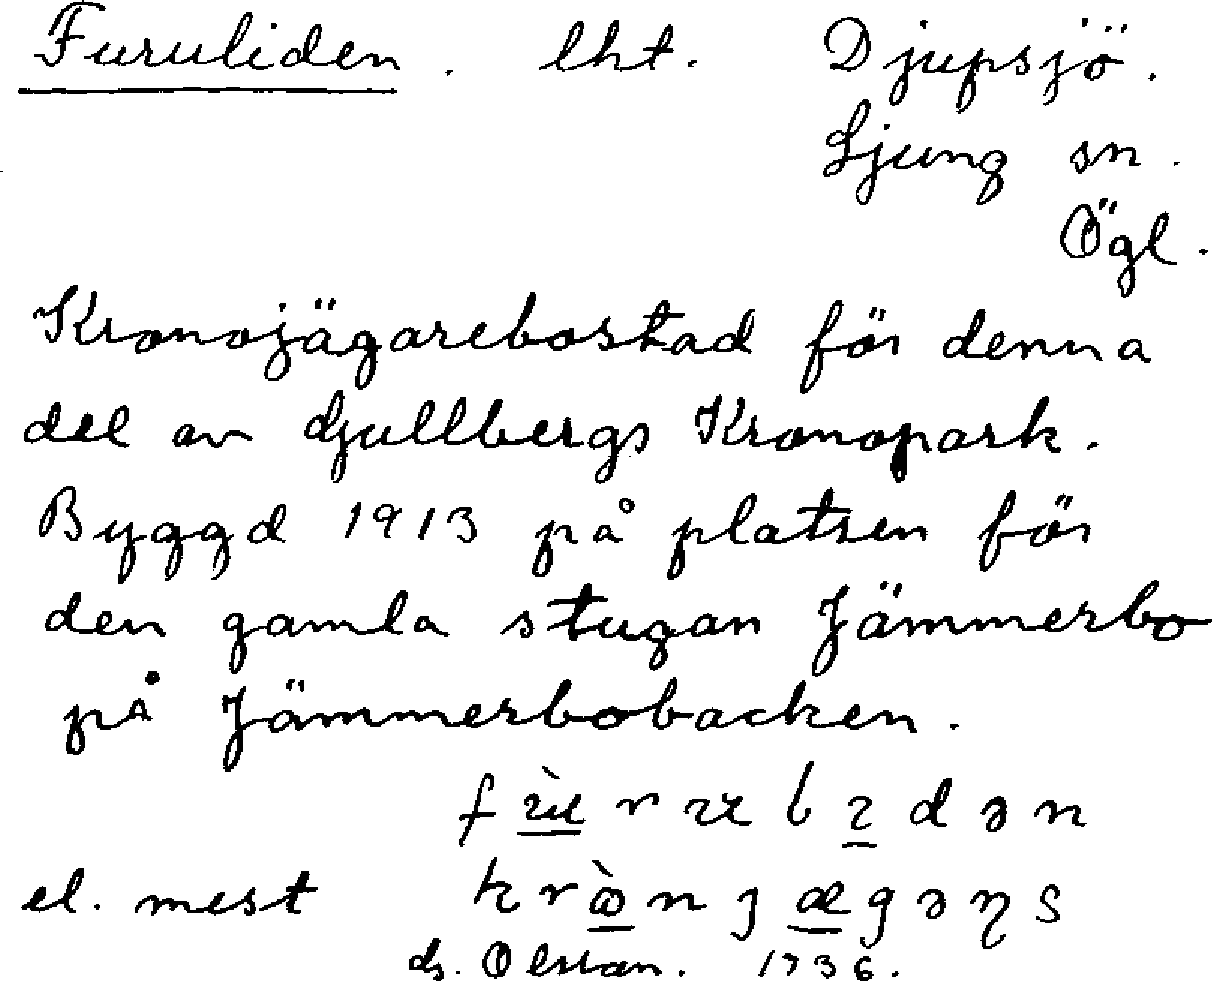 Furuliden. lht. Djupsjö.
Ljung sn.
Ögl.
Kronojägarebostad för denna
del av Gullbergs Kronopark.
Byggd 1913 på platsen för
den gamla stugan Jämmerbo
på Jämmerbobacken.
el. mest
Olsson. 1936.